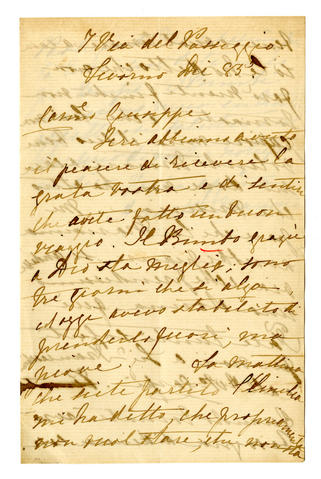 7 Via del Passeggio
Livorno Dec 23
Carmo Giuseppe
Ieri abbiamo avuto
il piacere di ricevere la
grata vostra e di sentire
che avete fatto un buon
viaggio. Il Bimbo grazie
a Dio sta meglio, sono
tre giorni che si alza,
ed oggi avevo stabilito di
prenderlo fuori, ma
piove La mattina
che siete partito
mi ha detto, che propriamente
non vuol stare, che non sta